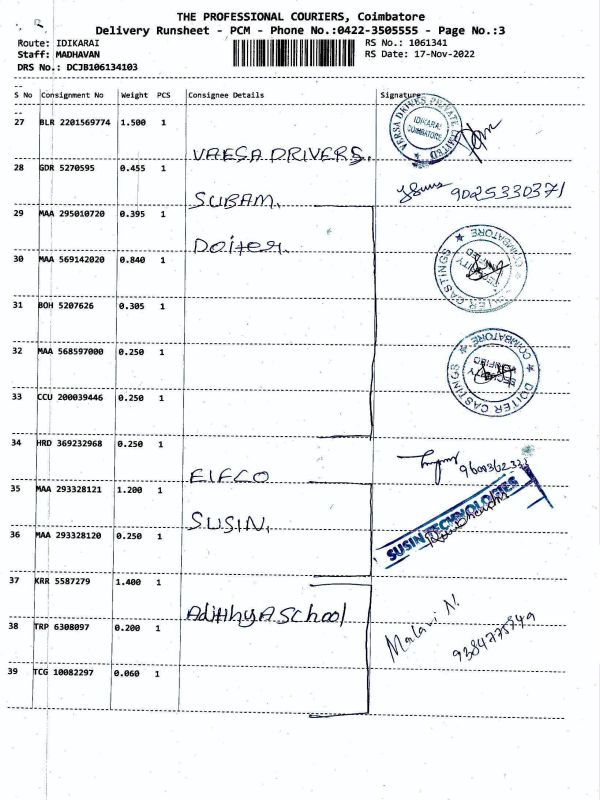 THE PROFESSIONAL COURIERS, Coimbatore
Delivery Runsheet - PCM - Phone No.:0422-3505555 - Page No.:3
Route: IDIKARAI
RS No.: 1061341
Staff: MADHAVAN
RS Date: 17-Nov-2022
DRS No.: DCJB106134103
S No Consignment No Weight PCS Consignee Details Signature
27 BLR 2201569774 1.500 1
VERSA DRIVES PRIVATE LIMITED
IDIKARAI
COIMBATORE
VAESA DRIVERS.
28 GDR 5270595 0.455 1
SUBAM. 9025330371
29 MAA 295010720 0.395 1
Doiter.
30 MAA 569142020 0.840 1
COIMBATORE
SECURITY
VERIFIED
DOITER CASTINGS
31 BOH 5207626 0.305 1
32 MAA 568597000 0.250 1
COIMBATORE
SECURITY
VERIFIED
DOITER CASTINGS
33 CCU 200039446 0.250 1
34 HRD 369232968 0.250 1
EIFCO
35 MAA 293328121 1.200 1
SUSIN.
SUSIN TECHNOLOGIES
36 MAA 293328120 0.250 1
37 KRR 5587279 1.400 1
Adithya School
Malavi N.
38 TRP 6308097 0.200 1
39 TCG 10082297 0.060 1